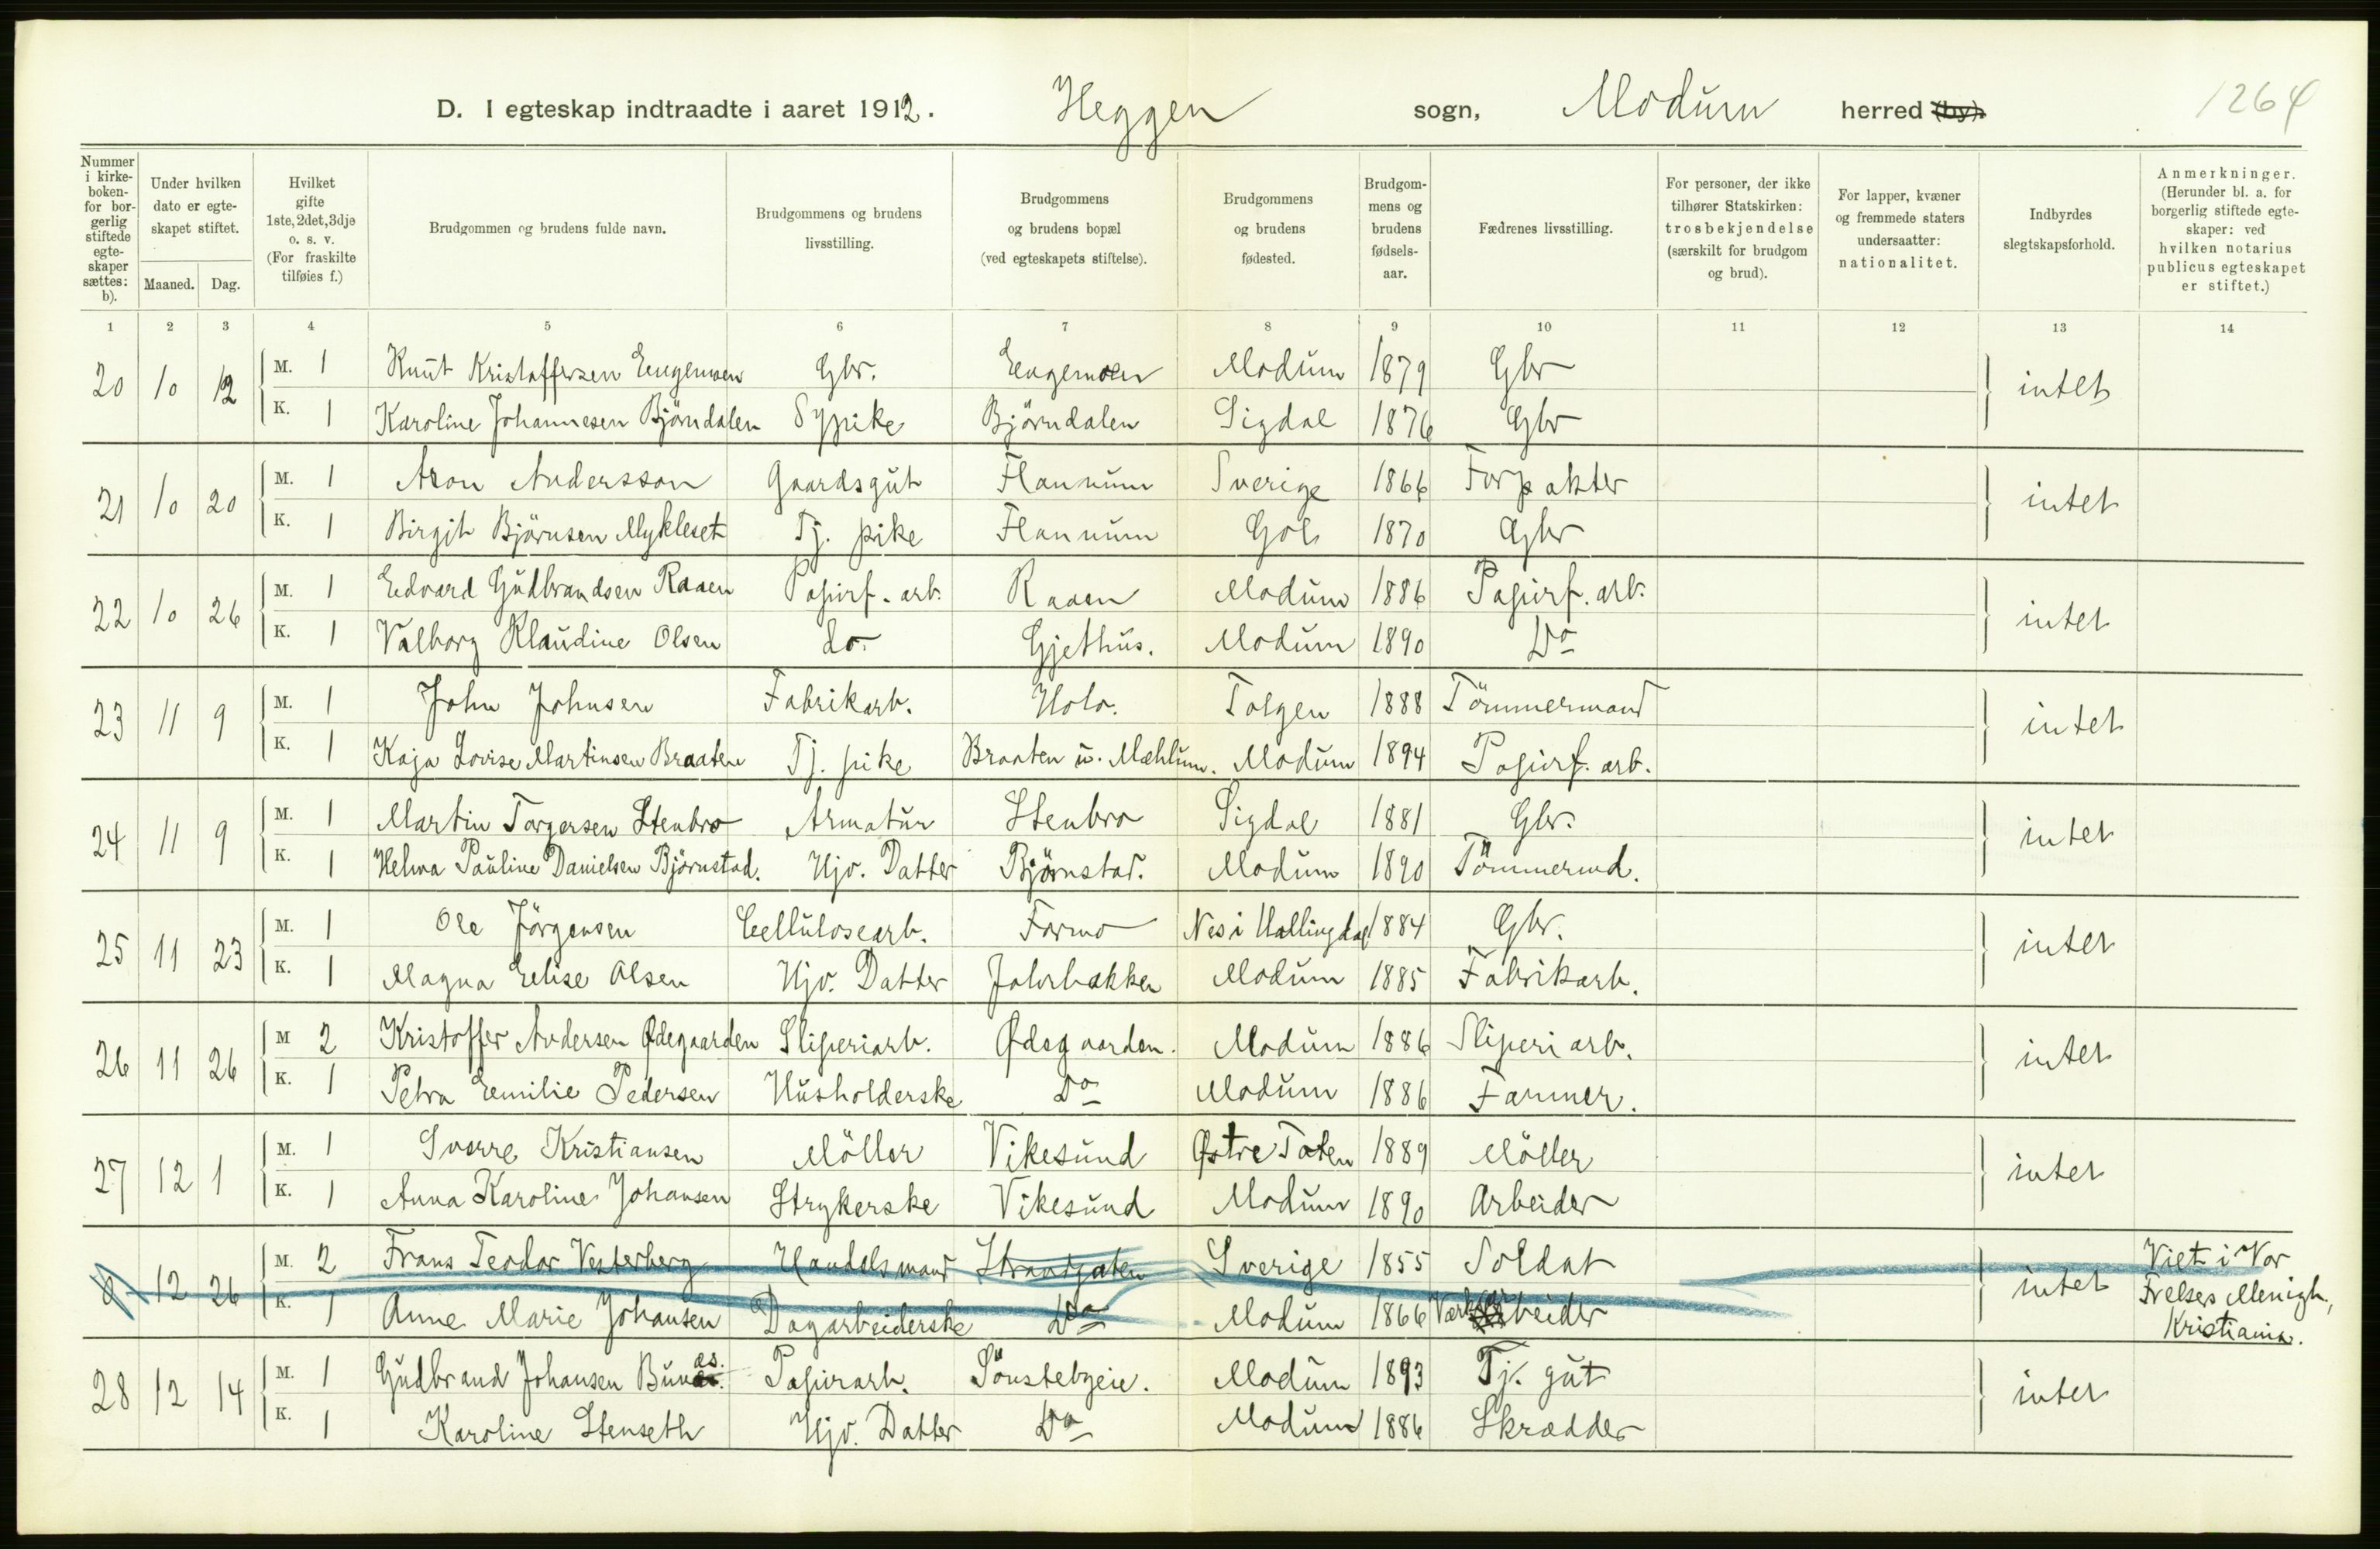 D. I egteskap indtraadte i aaret 1912. Heggen sogn, Modum herred (by). 1264
Nummer i kirkeboken- for borgerlig stiftede egteskaper sættes: b).
Under hvilken dato er egteskapet stiftet.
Maaned. Dag.
Hvilket gifte 1ste, 2det, 3dje o. s. v. (For fraskilte tilføies f.)
Brudgommen og brudens fulde navn.
Brudgommens og brudens livsstilling.
Brudgommens og brudens bopæl (ved egteskapets stiftelse).
Brudgommens og brudens fødested.
Brudgommens og brudens fødselsaar.
Fædrenes livsstilling.
For personer, der ikke tilhører Statskirken: trosbekjendelse (særskilt for brudgom og brud).
For lapper, kvæner og fremmede staters undersaatter: nationalitet.
Indbyrdes slegtskapsforhold.
Anmerkninger. (Herunder bl. a. for borgerlig stiftede egteskaper: ved hvilken notarius publicus egteskapet er stiftet.)
1 2 3 4 5 6 7 8 9 10 11 12 13 14
20 10 12 M. 1 Knut Kristoffersen Engemoen Gbr. Engemoen Modum 1879 Gbr intet
K. 1 Karoline Johannesen Björndalen Sypike Björndalen Sigdal 1876 Gbr
21 10 20 M. 1 Aron Andersson Gaardsgut Flannum Sverige 1866 Forpakter intet
K. 1 Birgit Björnsen Mykleset Tj. pike Flannum Gol 1870 Gbr
22 10 26 M. 1 Edvard Gudbrandsen Raaen Papirf. arb. Raaen Modum 1886 Papirf. arb. intet
K. 1 Valborg Klaudine Olsen do. Gjethus. Modum 1890 Do
23 11 9 M. 1 John Johnsen Fabrikarb. Holo. Tolgen 1888 Tömmermand intet
K. 1 Kaja Lovise Martinsen Braaten Tj. pike Braaten u. Mæhlum. Modum 1894 Papirf. arb.
24 11 9 M. 1 Martin Torgersen Stenbro Armatur Stenbro Sigdal 1881 Gbr. intet
K. 1 Helma Pauline Danielsen Björnstad. Hjv. Datter Björnstad. Modum 1890 Tömmermd.
25 11 23 M. 1 Ole Jörgensen Cellulosearb. Formo Nes i Hallingdal 1884 Gbr. intet
K. 1 Magna Elise Olsen Hjv. Datter Jahrbakken Modum 1885 Fabrikarb.
26 11 26 M 2 Kristoffer Andersen Ødegaarden Sliperiarb. Ødegaarden. Modum 1886 Sliperiarb. intet
K. 1 Petra Emilie Pedersen Husholderske Do Modum 1886 Farmer.
27 12 1 M. 1 Sverre Kristiansen Möller Vikesund Østre Toten 1889 Möller intet
K. 1 Anna Karoline Johansen Strykerske Vikesund Modum 1890 Arbeider
12 26 M. 2 Frans Teodor Vesterberg Handelsmand Strandgaten Sverige 1855 Soldat intet Viet i Vor Frelsers Menigh, Kristiania.
K. 1 Anne Marie Johansen Dagarbeiderske Do Modum 1866
28 12 14 M. 1 Gudbrand Johansen Bunæs. Papirarb. Sönstebyeie. Modum 1893 Tj. gut intet
K. 1 Karoline Stenseth Hjv. Datter Do Modum 1886 Skrædder